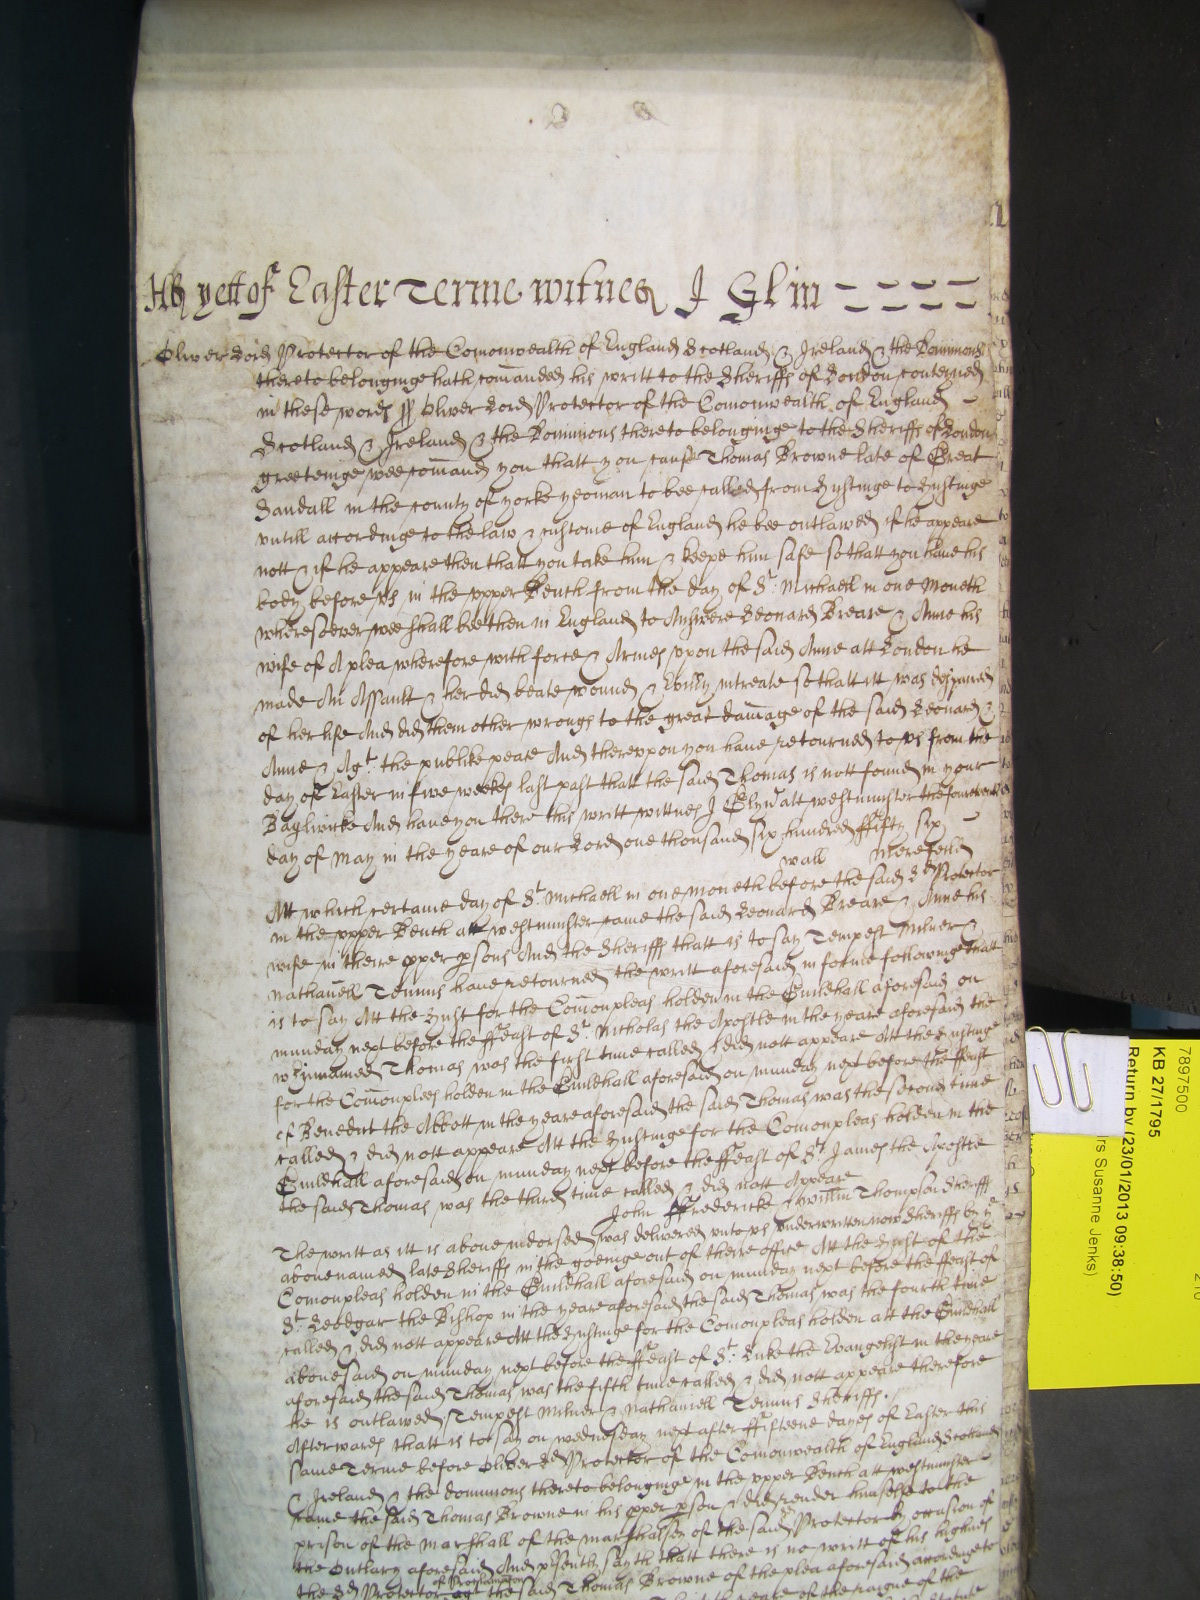 As yett of Easter Terme witnes J Glin
Oliver Lord Protector of the Comonwealth of England Scotland & Ireland & the Dominions
thereto belonginge hath comanded his writt to the Sheriffs of London conteyned
in these words ss Oliver Lord Protector of the Comonwealth of England
Scotland & Ireland & the Dominions thereto belonginge to the Sheriffs of London
greeteinge wee comand you thatt you cause Thomas Browne late of Great
Sandall in the county of yorke yeoman to bee called from Hustinge to Hustinge
untill accordinge to the law & custome of England he bee outlawed if he appeare
nott & if he appeare then thatt you take him & keepe him safe so thatt you have his
body before us in the upper Bench from the day of St. Michaell in one Moneth
wheresoever wee shall bee then in England to Answere Leonard Breare & Anne his
wife of A plea wherefore with force & Armes upon the said Anne att London he
made An Assault & her did beate wound & Evilly intreate so thatt itt was dispaired
of her life And did them other wrongs to the great damage of the said Leonard &
Anne & Agt. the publike peace And thereupon you have retourned to us from the
day of Easter in five weekes last past thatt the said Thomas is nott found in your
Bayliwicke And have you there this writt wittnes J Glyn att westminster the fourteenth
day of May in the yeare of our Lord one thousand six hundred ffifty six
wall Merefeild
Att which certaine day of St. Michaell in one moneth before the said Ld Protector
in the upper Bench att westminster came the said Leonard Breare & Anne his
wife in theire pper psons And the Sheriffs thatt is to say Tempest Milner &
Nathaniell Temms have retourned the writt aforesaid in forme followinge thatt
is to say Att the Hust for the Comonpleas holden in the Guildhall aforesaid on
munday next before the ffeast of St. Nicholas the Apostle in the yeare aforesaid the
w:innamed Thomas was the first time called & did nott appeare Att the Hustinge
for the Comonpleas holden in the Guildhall aforesaid on munday next before the ffeast
of Benedict the Abbott in the yeare aforesaid the said Thomas was the second time
called & did nott appeare Att the Hustinge for the Comonpleas holden in the
Guildhall aforesaid on munday next before the ffeast of St. James the Apostle
the said Thomas was the third time called & did nott Appeare
John Frederick & willm Thompson Sheriffs
The writt as itt is above indorsed was delivered unto us underwritten now Sheriffs by ye
abovenamed late Sheriffs in the goeinge out of theire office Att the Hust of the
Comonpleas holden in the Guildhall aforesaid on munday next before the ffeast of
St. Leodgar the Bishop in the yeare aforesaid the said Thomas was the fourth time
called & did nott appeare Att the Hustinge for the Comonpleas holden att the Guildhall
abovesaid on munday next before the ffeast of St. Luke the Evangelist in the yeare
aforesaid the said Thomas was the fifth time called & did nott appeare therefore
he is outlawed Tempest Milner & Nathaniell Temms Sheriffs.
Afterwards thatt is to say on wednesday next after ffifteene dayes of Easter this
same Terme before Oliver Ld Protector of the Comonwealth of England Scotland
& Ireland & the dominions thereto belonginge in the upper Bench att westminster
came the said Thomas Browne in his pper pson & did render himselfe to the
prison of the Marshall of the Marshalsea of the said Ld Protector by occasion of
the Outlary aforesaid And psently sayth thatt there is no writt of his highnes
the Ld Protector of Proclamacon agt the said Thomas Browne of the plea aforesaid accordinge to
yeare of the raigne of the
7897500
KB 27/1795
Return by (23/01/2013 09:38:50)
rs Susanne Jenks)